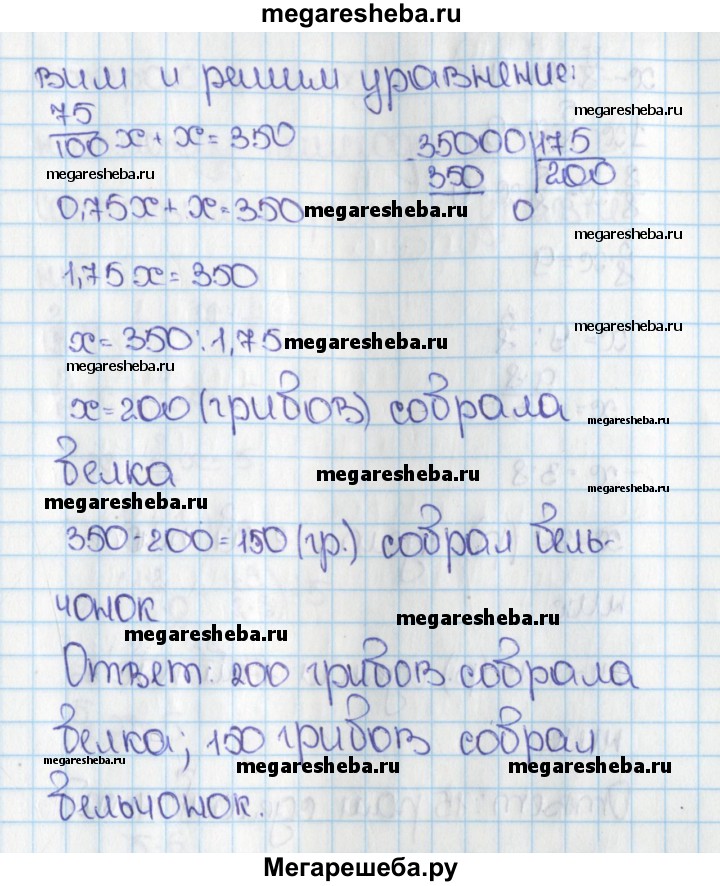 megaresheba.ru
вим и решим уравнение:
75/100 x + x = 350
megaresheba.ru
megaresheba.ru
35000 | 175
- 350 | 200
0
0,75x + x = 350 megaresheba.ru
megaresheba.ru
1,75x = 350
x = 350 : 1,75 megaresheba.ru
megaresheba.ru
megaresheba.ru
x = 200 (грибов) собрала
megaresheba.ru
белка megaresheba.ru
megaresheba.ru
megaresheba.ru
350 - 200 = 150 (гр.) собрал бель-
чонок megaresheba.ru
megaresheba.ru
Ответ: 200 грибов собрала
белка; 150 грибов собрал
megaresheba.ru megaresheba.ru
бельчонок.
Мегарешеба.ру